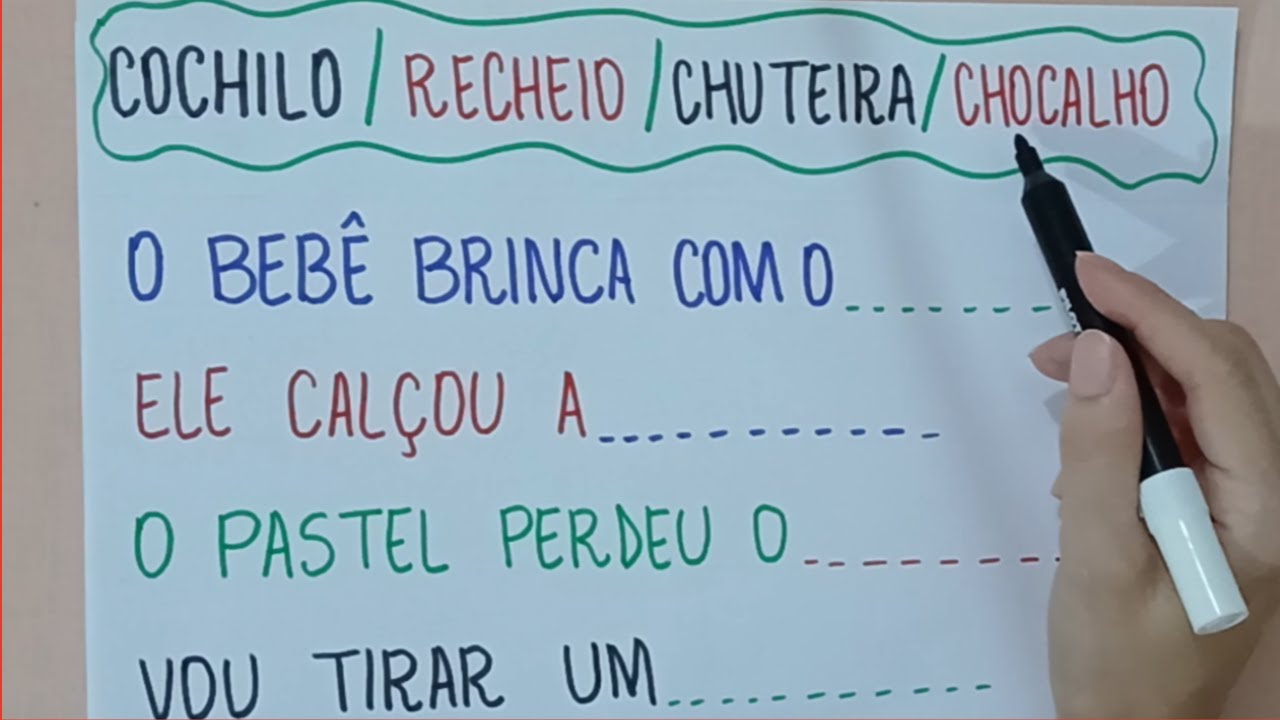 COCHILO / RECHEIO / CHUTEIRA / CHOCALHO
O BEBÊ BRINCA COM O
ELE CALÇOU A
O PASTEL PERDEU O
VOU TIRAR UM